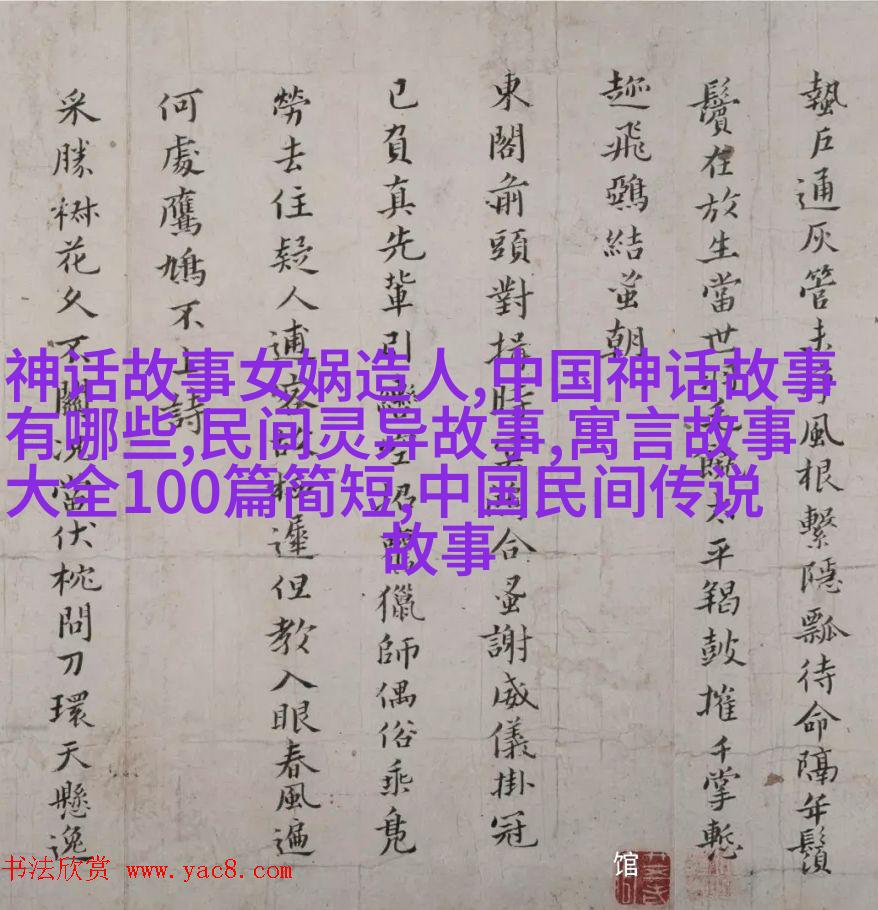 蟄戶通灰管未風根繫隱瓢待命隔年鬚
鬢在放生當世太平羯鼓摧千掌慙
飛鵶結蚩朝
東閣前頭對揖時合蚤謝威儀掛冠
已負真先輩引獵師偶俗乘鳧
勞去住疑人逋遲但教入眼春風遍
何處鷹鳩不上詩
采勝樹花久不關況當伏枕問刀環天懸逸
神话故事女娲造人,中国神话故事
有哪些,民间灵异故事,寓言故事
大全100篇简短,中国民间传说
故事
馆
书法欣赏 www.yac8.com